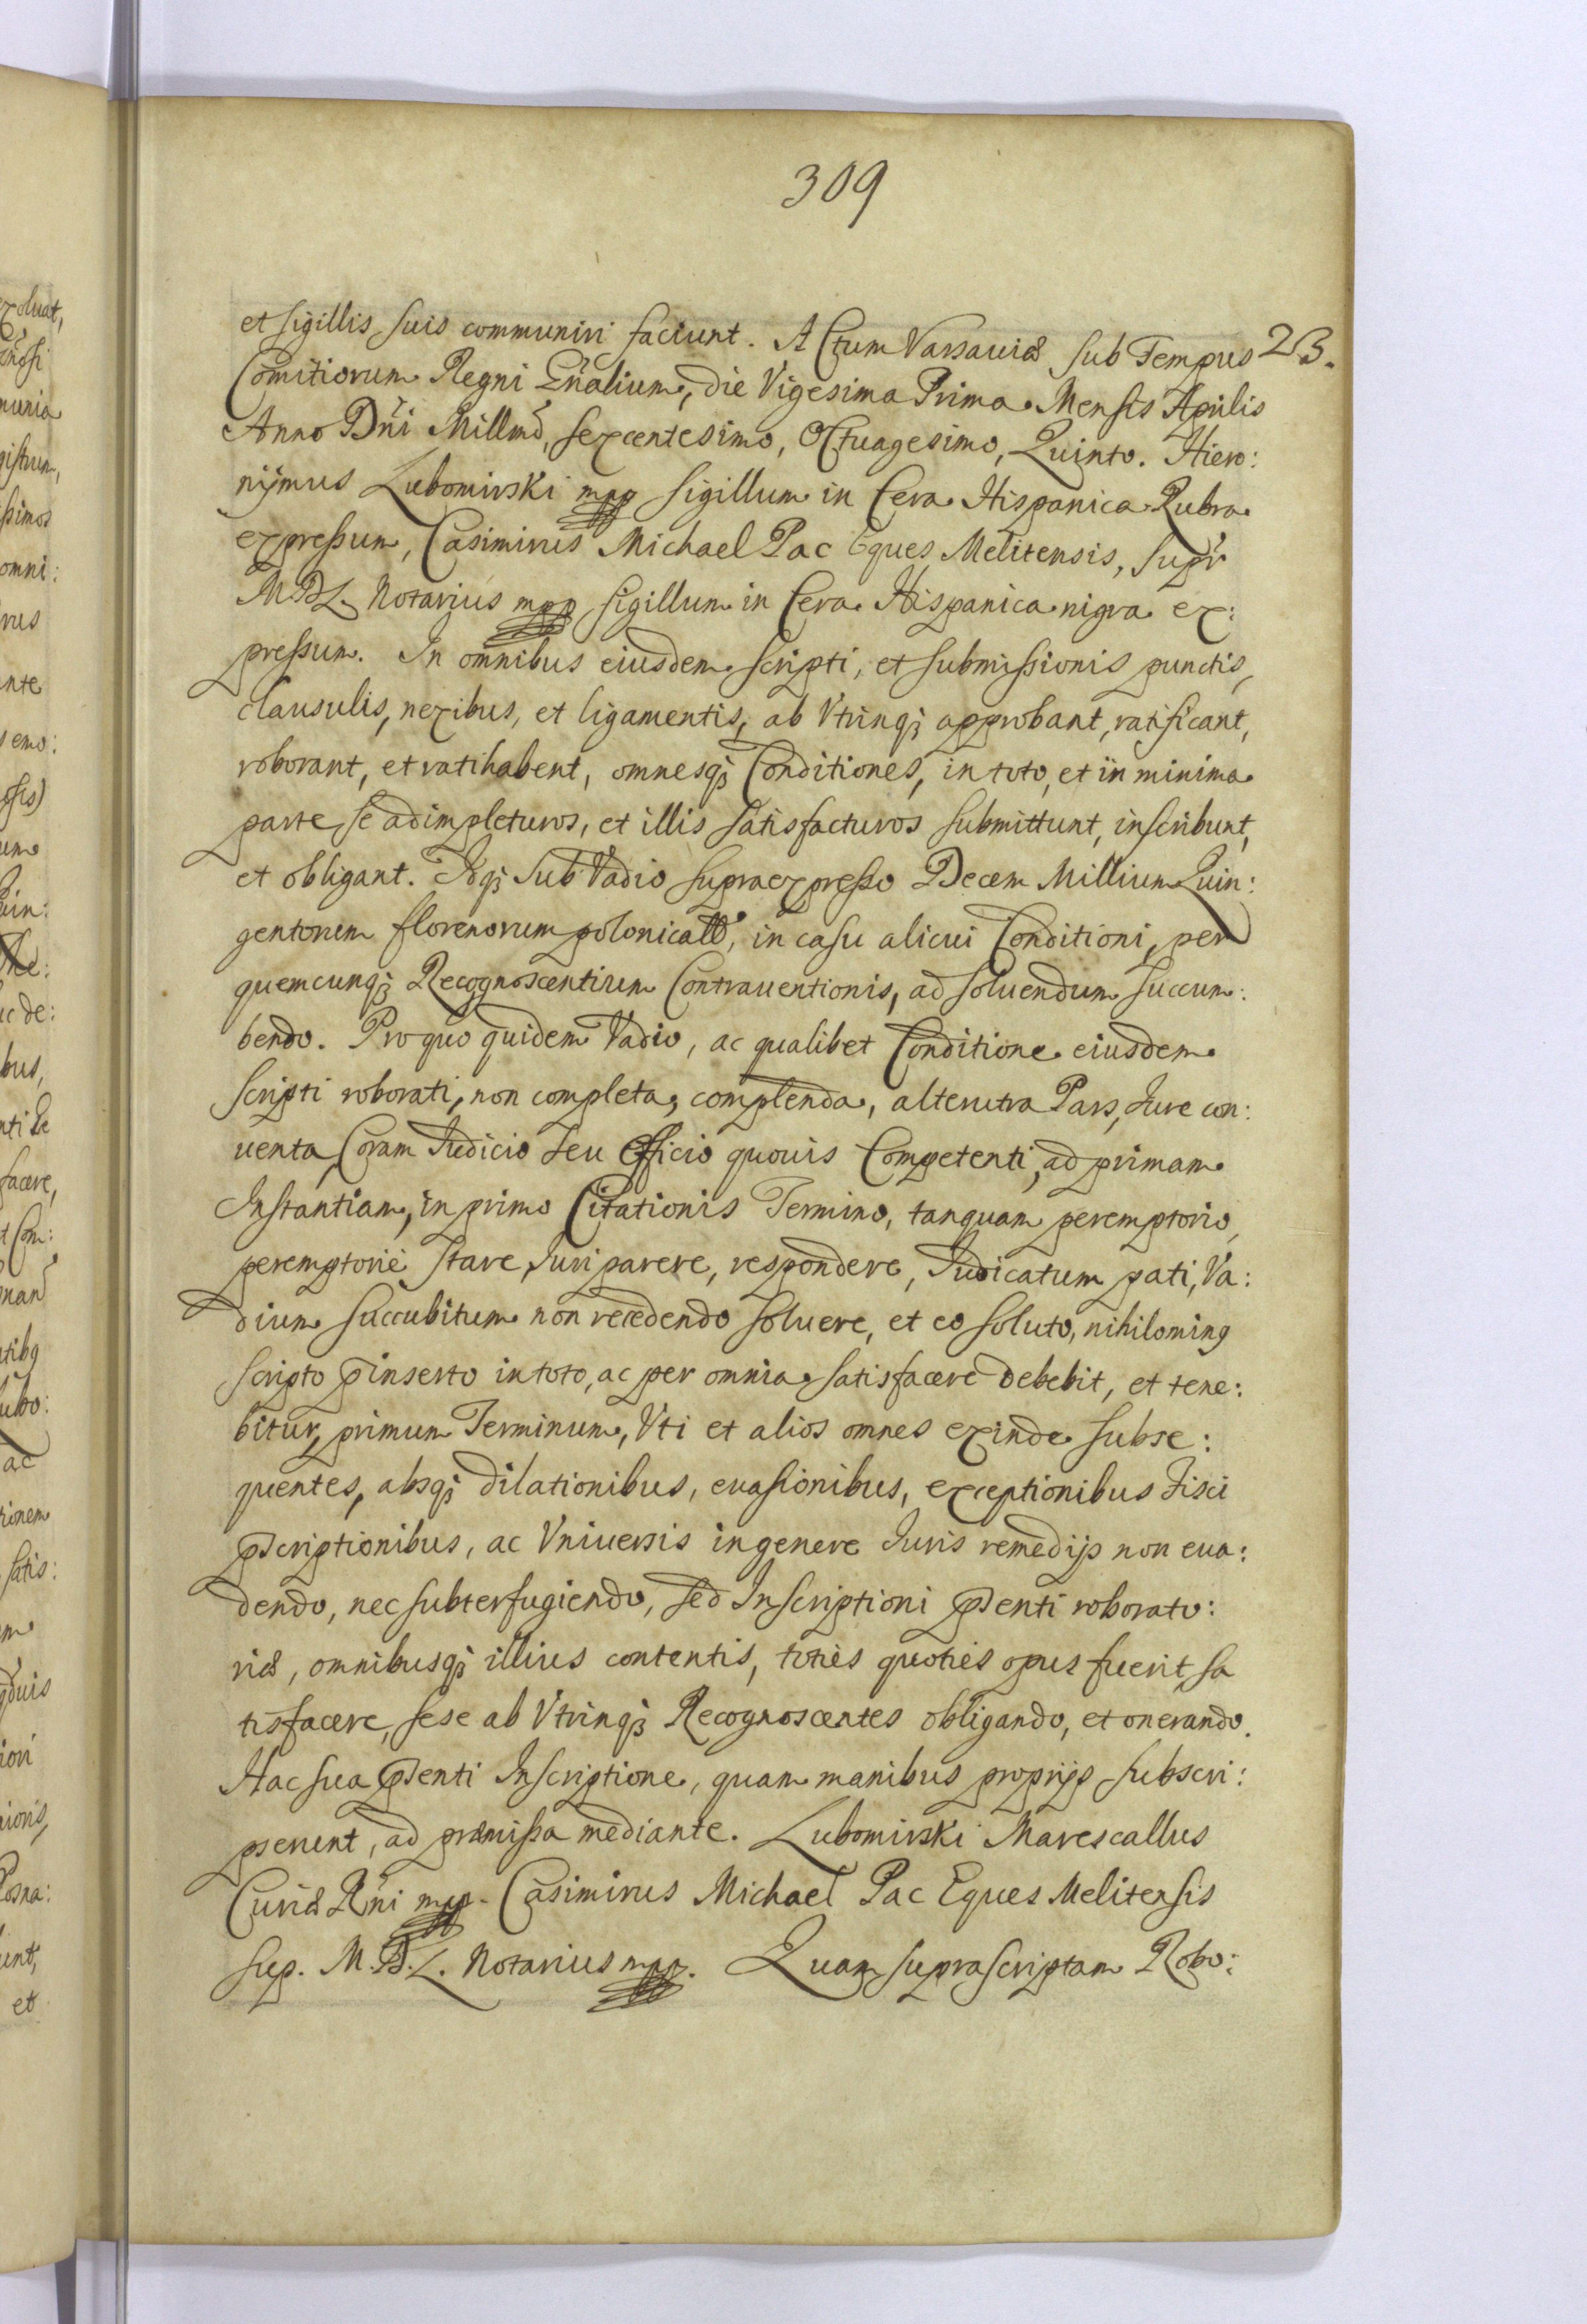 309
et sigillis suis communiri faciunt. Actum Varsaviæ sub Tempus 23.
Comitiorum Regni Gnãlium, die Vigesima Prima Mensis Aprilis
Anno Dñi Millmõ, sexcentesimo, Octuagesimo, Quinto. Hiero:
nÿmus Lubomirski mpp sigillum in Cera Hispanica Rubra
expressum, Casimirus Michael Pac Eques Melitensis, supr
M.D.L. Notarius mpp sigillum in Cera Hispanica nigra ex:
pressum. In omnibus eiusdem scripti, et submissionis punctis,
clausulis, nexibus, et ligamentis, ab Vtrinq; approbant, ratificant,
roborant, et ratihabent, omnesq; Conditiones, in toto, et in minima
parte se adimpleturos, et illis satisfacturos submittunt, inscribunt,
et obligant. Idq; sub Vadio supraexpresso Decem Millium Quin:
gentorum florenorum polonicalium, in casu alicui Conditioni, per
quemcunq; Recognoscentium Contrauentionis, ad soluendum succum:
bendo. Pro quo quidem Vadio, ac qualibet Conditione eiusdem
scripti roborati, non completa, complenda, alterutra Pars, Iure con:
uenta, Coram Iudicio seu Officio quouis Competenti, ad primam
Instantiam, in primo Citationis Termino, tanquam peremptorio,
peremptoriè stare, Iuri parere, respondere, Iudicatum pati, Va:
dium succubitum non recedendo soluere, et eo soluto, nihilominq
scripto p̃inserto in toto, ac per omnia satisfacere debebit, et tene:
bitur, primum Terminum, Vti et alios omnes exinde subse:
quentes, absq; dilationibus, euasionibus, exceptionibus Fisci
p̃scriptionibus, ac Vniuersis in genere Iuris remedijs non eua:
dendo, nec subterfugiendo, sed Inscriptioni p̃senti roborato:
riæ, omnibusq; illius contentis, toties quoties opus fuerit, sa
tisfacere, sese ab Vtrinq; Recognoscentes obligando, et onerando.
Hac sua p̃senti Inscriptione, quam manibus proprijs subscri:
pserunt, ad præmissa mediante. Lubomirski Marescallus
Curiæ Rñi mpp. Casimirus Michael Pac Eques Melitensis
sup. M.D.L. Notarius mpp. Quam suprascriptam Robo: